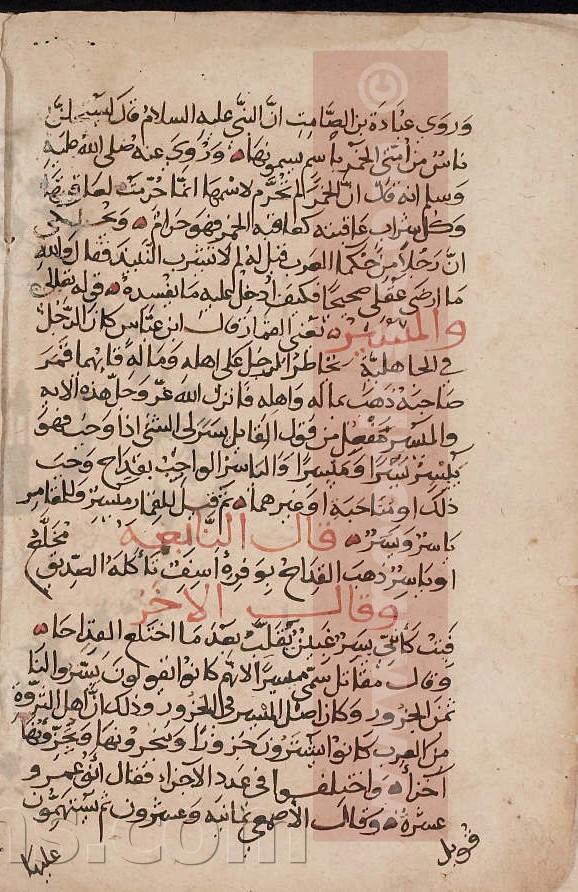 وروى عبادة بن الصامت ان النبي عليه السلام قال ليستحلن
ناس من امتي الخمر باسم يسمونها وروى عنه صلى الله عليه
وسلم انه قال ان الخمر لم تحرم لاسمها انما حرمت لعاقبتها
وكل شراب عاقبته كعاقبة الخمر فهو حرام
ان رجلا من حكما العرب قيل له لم لا تشرب النبيذ فقال والله
ما ارضى عقلي صحيحا فكيف ادخل عليه ما يفسده قوله تعالى
والميسر يعني القمار قال ابن عباس كان الرجل
في الجاهلية يخاطر الرجل على اهله وماله فايهما قمر
صاحبه ذهب بماله واهله فانزل الله عز وجل هذه الاية
والميسر مفعل من قول القائل يسر لي الشي اذا وجب فهو
ييسر يسرا وميسرا والياسر الواجب بقداح وجب
ذلك او مناحبة او غيرهما ثم قيل للقمار ميسر وللمقامر
ياسر ويسر قال النابغة
او ياسر ذهب القداح بوفره اسف تأكله الصديق مخلع
وقال الاخر
فبت كانني يسر غبين يقلب بعد ما اختلع القداحا
وقال مقاتل سمي ميسرا لانهم كانوا يقولون يسروا لنا
ثمن الجزور وكان اصل الميسر في الجزور وذلك ان اهل الثروة
من العرب كانوا يشترون جزورا وينحرونها ويجزونها
اجزا واختلفوا في عدد الاجزاء فقال ابو عمرو
عشرة وقال الاصمعي ثمانية وعشرون ثم يستهمون
عليها
قوبل